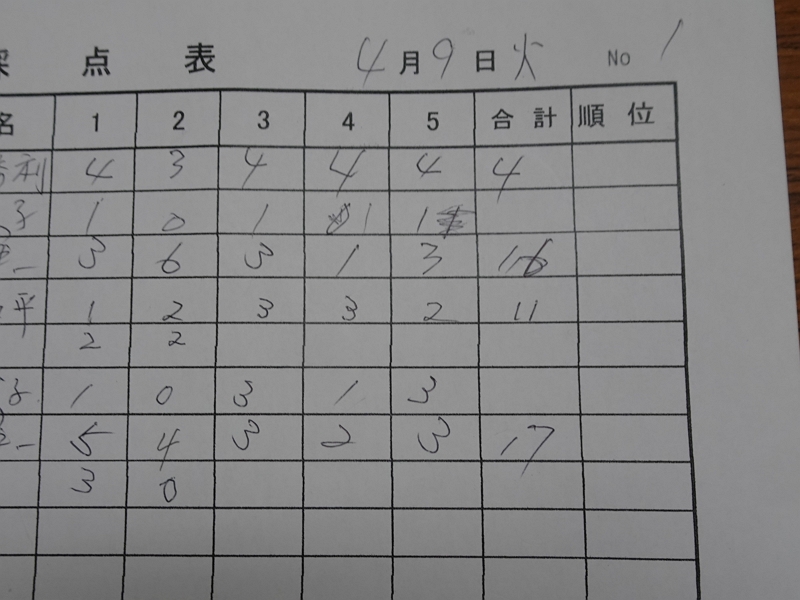 点 表 4月9日火 No 1
名 1 2 3 4 5 合計 順位
利 4 3 4 4 4 4
子 1 0 1 1 1
一 3 6 3 1 3 16
平 1 2 3 3 2 11
2 2
子 1 0 3 1 3
一 5 4 3 2 3 17
3 0